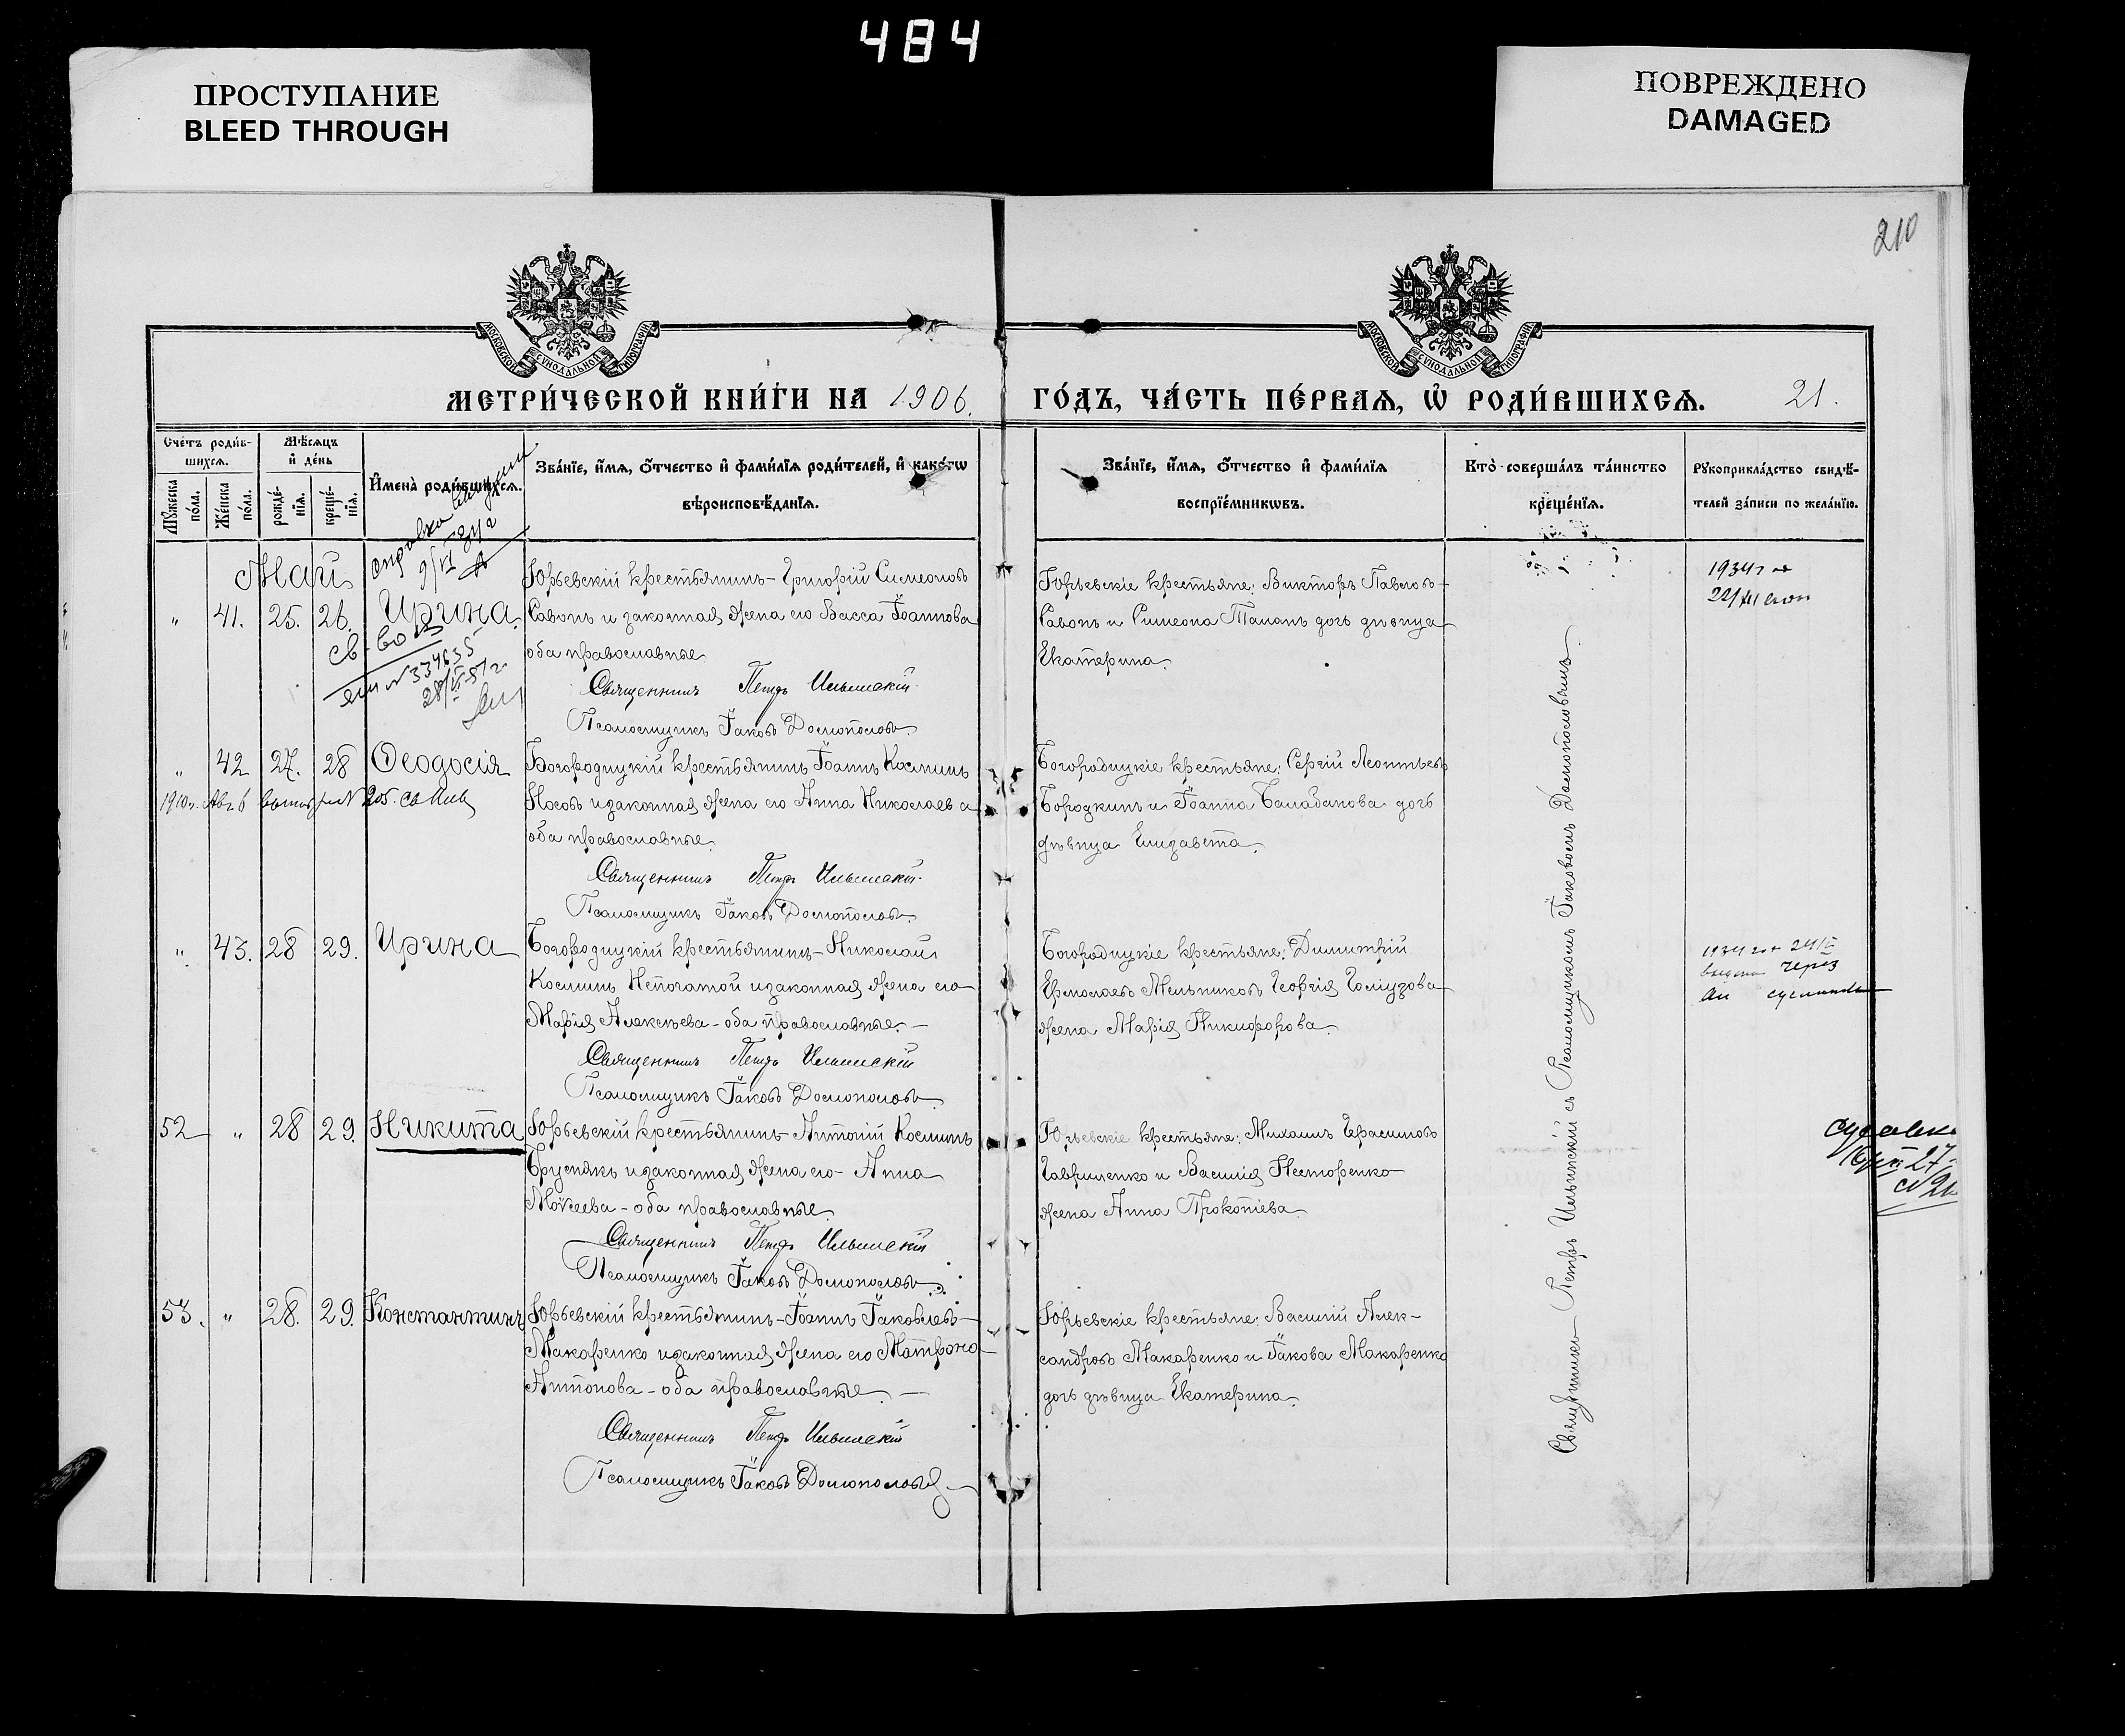 484
ПРОСТУПАНИЕ
BLEED THROUGH
ПОВРЕЖДЕНО
DAMAGED
210
МОСКОВСКОЙ СѴНОДАЛЬНОЙ ТИПОГРАФІИ
МОСКОВСКОЙ СѴНОДАЛЬНОЙ ТИПОГРАФІИ
МЕТРИ́ЧЕСКОЙ КНИ́ГИ НА 1906.
ГО́ДЪ, ЧА́СТЬ ПЕ́РВАѦ, Ѡ РОДИ́ВШИХСѦ. 21.
Сче́тъ роди́в-
шихсѧ.
Мꙋ́жеска по́ла.
Же́нска по́ла.
Мѣ́сѧцъ
и де́нь
рожде́-
нїѧ.
креще́-
нїѧ.
Имена̀ роди́вшихсѧ.
Зва́нїе, и́мѧ, о́тчество и фами́лїѧ роди́телей, и како́гѡ
вѣроисповѣ́данїѧ.
Зва́нїе, и́мѧ, о́тчество и фами́лїѧ
воспрїе́мникѡвъ.
Кто̀ соверша́лъ та́инство
креще́нїѧ.
Рꙋкоприкла́дство свидѣ́-
телей за́писи по жела́нїю.
Май
" 41. 25. 26. Ирина.
Юрьевскій крестьянинъ - Григорій Симеоновъ
Савонъ и законная жена его Васса Іоаннова
оба православные.
Священникъ Петръ Ильинскій
Псаломщикъ Іаковъ Доснополовъ
Юрьевскіе крестьяне: Викторъ Павловъ
Савонъ и Симеона Танань дочь дѣвица
Екатерина.
справка
9/VI
св-во
№ 334635
28/VI-51 г.
1934 г
" 42 27. 28 Ѳеодосія
1910 г. Авг. 6 205.
Богородицкій крестьянинъ Іоаннъ Косминъ
Носовъ и законная жена его Анна Николаева
оба православные.
Священникъ Петръ Ильинскій
Псаломщикъ Іаковъ Доснополовъ
Богородицкіе крестьяне: Сергій Леонтьевъ
Бородкинъ и Іоанна Балабанова дочь
дѣвица Елизавета.
" 43. 28 29. Ирина
Богородицкій крестьянинъ - Николай
Косминъ Непочатой и законная жена его
Марія Алексѣева - оба православные. -
Священникъ Петръ Ильинскій
Псаломщикъ Іаковъ Доснополовъ
Богородицкіе крестьяне: Димитрій
Ермолаевъ Мельниковъ Георгія Голіузова
жена Марія Никифорова.
через
52 " 28 29. Никита
Юрьевскій крестьянинъ Антоній Косминъ
Бруснякъ и законная жена его - Анна
Моѵсеева - оба православные.
Священникъ Петръ Ильинскій
Псаломщикъ Іаковъ Доснополовъ
Юрьевскіе крестьяне: Михаилъ Герасимовъ
Гавриленко и Василія Нестеренко
жена Анна Прокопіева.
53. " 28. 29. Константинъ
Юрьевскій крестьянинъ - Іоаннъ Іаковлевъ
Макаренко и законная жена его Матрона
Антонова - оба православные. -
Священникъ Петръ Ильинскій
Псаломщикъ Іаковъ Доснополовъ
Юрьевскіе крестьяне: Василій Алек-
сандровъ Макаренко и Іакова Макаренко
дочь дѣвица Екатерина.
Священникъ Петръ Ильинскій съ Псаломщикомъ Іаковомъ Доснополовымъ